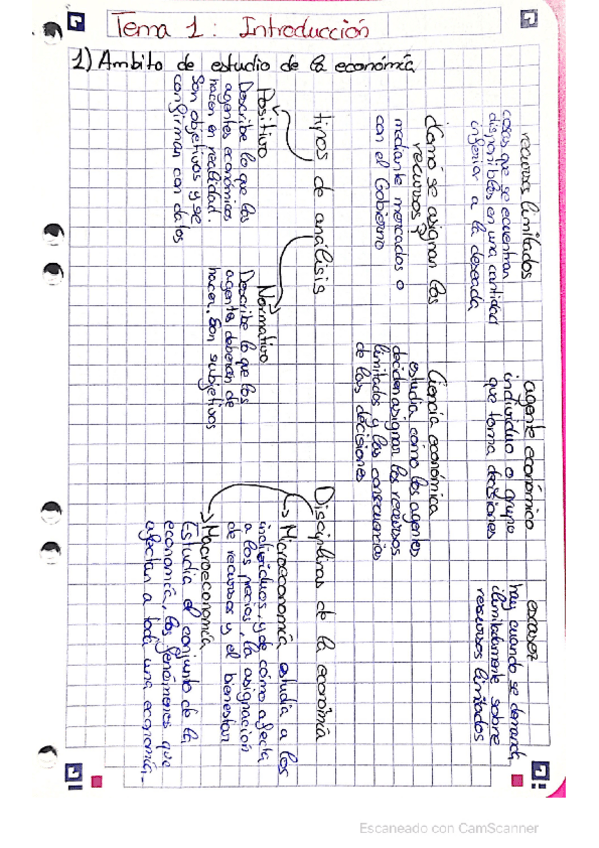 Tema 1: Introducción
1) Ambito de estudio de la económia
recursos limitados
cosas que se ecuentran
disponibles en una cantidad
inferior a la deseada
agente económico
individuo o grupo
que toma decisiones
escasez
hay cuando se demanda
ilimitadamente sobre
recursos limitados
Cómo se asignan los
recursos?
mediante mercados o
con el Gobierno
Ciencia económica
estudia como los agentes
deciden asignar los recursos
limitados y las consecuencias
de las decisiones
tipos de análisis
Positivo
Describe lo que los
agentes económicos
hacen en realidad.
Son objetivos y se
confirman con datos
Normativo
Describe lo que los
agentes deberían de
hacer. Son subjetivos
Disciplinas de la economía
Microeconomía estudia a los
individuos y de cómo afecta
a los precios, la asignación
de recursos y el bienestar
Macroeconomía
Estudia el conjunto de la
economía, los fenómenos que
afectan a toda una economía.
Escaneado con CamScanner